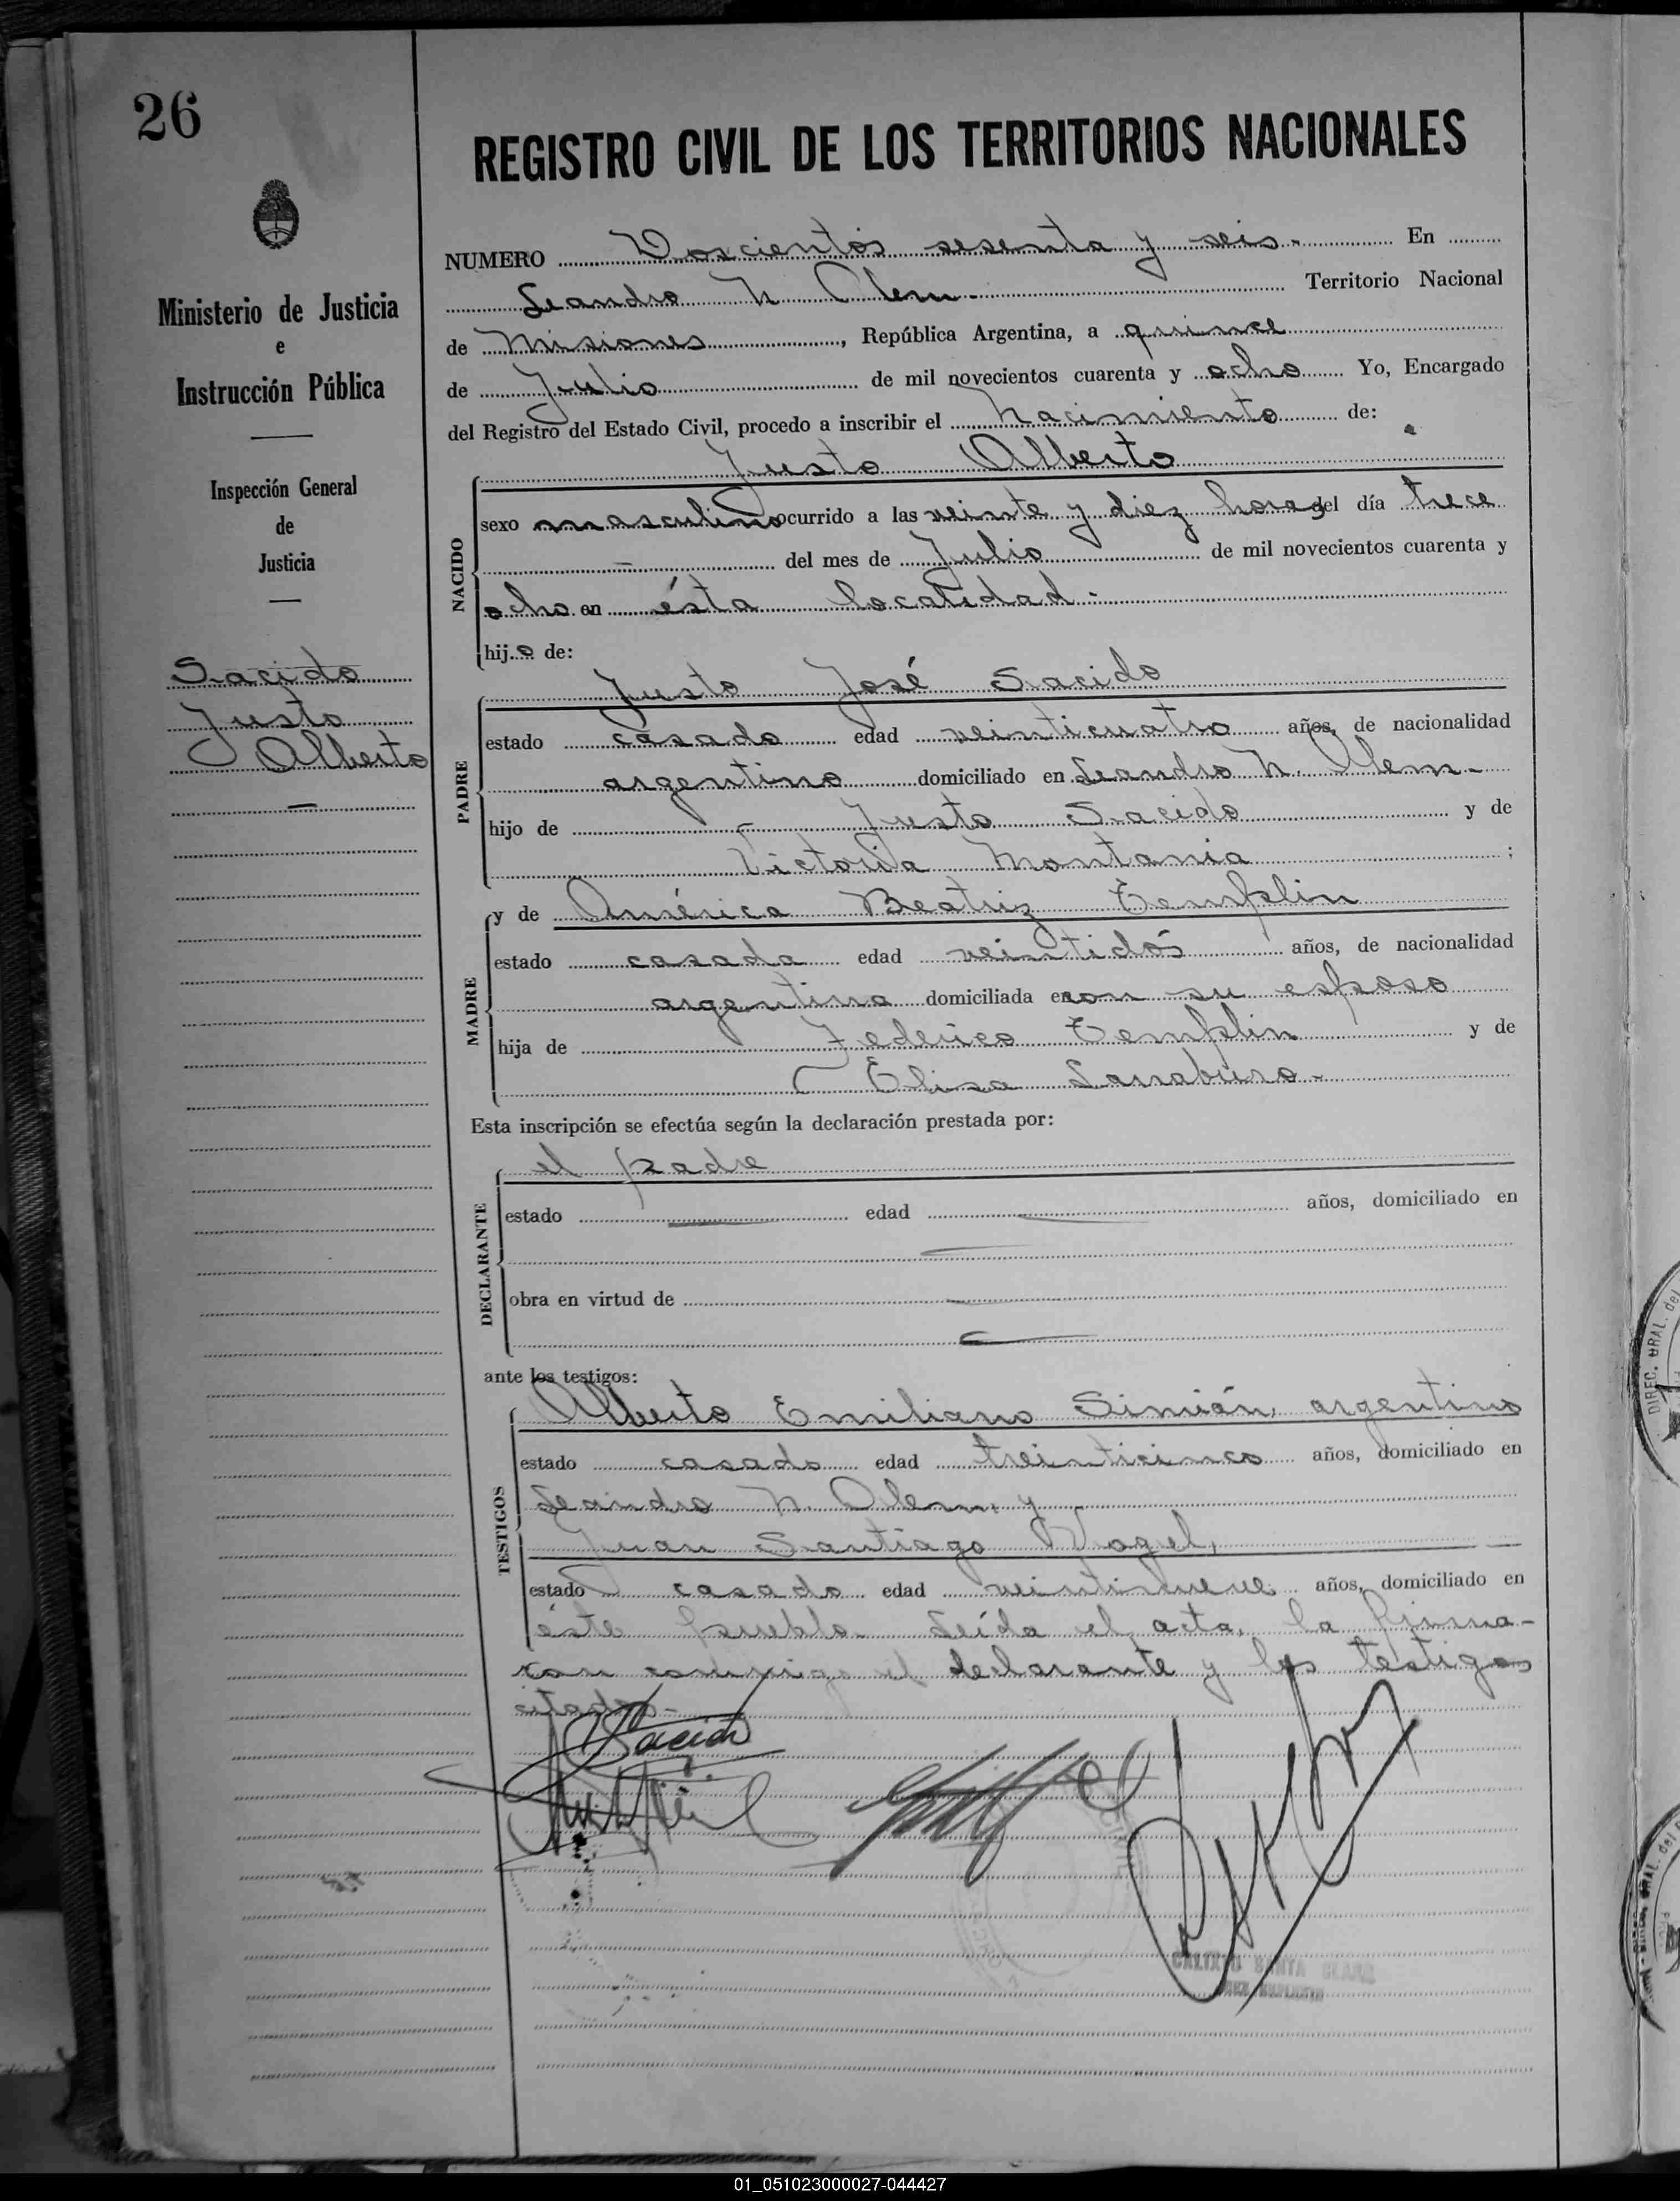 26
REGISTRO CIVIL DE LOS TERRITORIOS NACIONALES
Ministerio de Justicia
e
Instrucción Pública
Inspección General
de
Justicia
Sacido
Justo
Alberto
NUMERO Doscientos sesenta y seis.- En
Leandro N Alem.- Territorio Nacional
de Misiones, República Argentina, a quince
de Julio de mil novecientos cuarenta y ocho Yo, Encargado
del Registro del Estado Civil, procedo a inscribir el Nacimiento de:
Justo Alberto
NACIDO
sexo masculino ocurrido a las veinte y diez horas del día trece
- del mes de Julio de mil novecientos cuarenta y
ocho en ésta localidad.-
hijo de:
Justo José Sacido
PADRE
estado casado edad veinticuatro años, de nacionalidad
argentino domiciliado en Leandro N. Alem.-
hijo de Justo Sacido y de
Victoria Montania ;
y de América Beatriz Templin
MADRE
estado casada edad veintidós años, de nacionalidad
argentina domiciliada en con su esposo
hija de Federico Templin y de
Elisa Larraburo.-
Esta inscripción se efectúa según la declaración prestada por:
el padre
DECLARANTE
estado edad años, domiciliado en
obra en virtud de
ante los testigos:
Alberto Emiliano Simión, argentino
TESTIGOS
estado casado edad treinticinco años, domiciliado en
Leandro N. Alem, y
Juan Santiago Vogel,
estado casado edad veintinueve años, domiciliado en
éste pueblo.- Leída el acta, la firma-
ron conmigo el declarante y los testigos
citados.-
Sacido
CALIXTO SANTA CLARA
JUEZ SUPLENTE
DIREC. GRAL. del
01_051023000027-044427